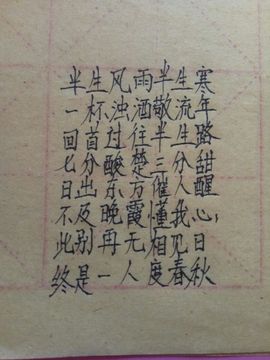 半生风雨半生寒
一杯浊酒敬流年
回首过往半生路
七分酸楚三分甜
日出东方催人醒
不及晚霞懂我心
此别再无相见日
终是一人度春秋